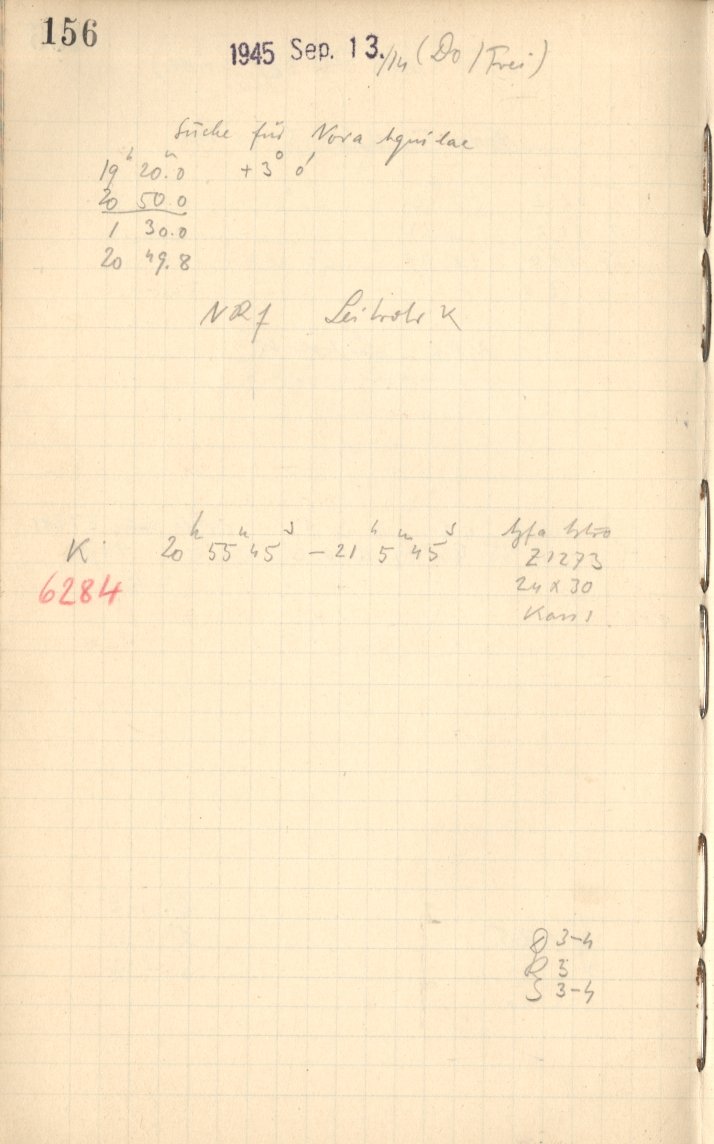 156
1945 Sep. 13./14 (Do/Frei)
Suche für Nova Aquilae
19ʰ 20ᵐ.0 +3° 0'
20 50.0
1 30.0
20 49.8
NRf Leitrohr K
K 20ʰ 55ᵐ 45ˢ – 21ʰ 5ᵐ 45ˢ Agfa Astro
Z1273
6284 24 x 30
Kass 1
D 3-4
R 3
S 3-4